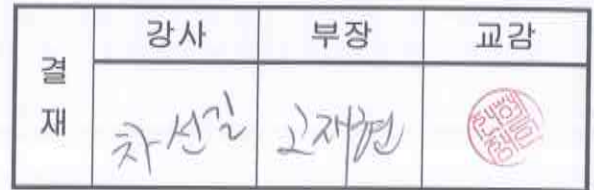 결재
강사 부장 교감
차선길 고재현